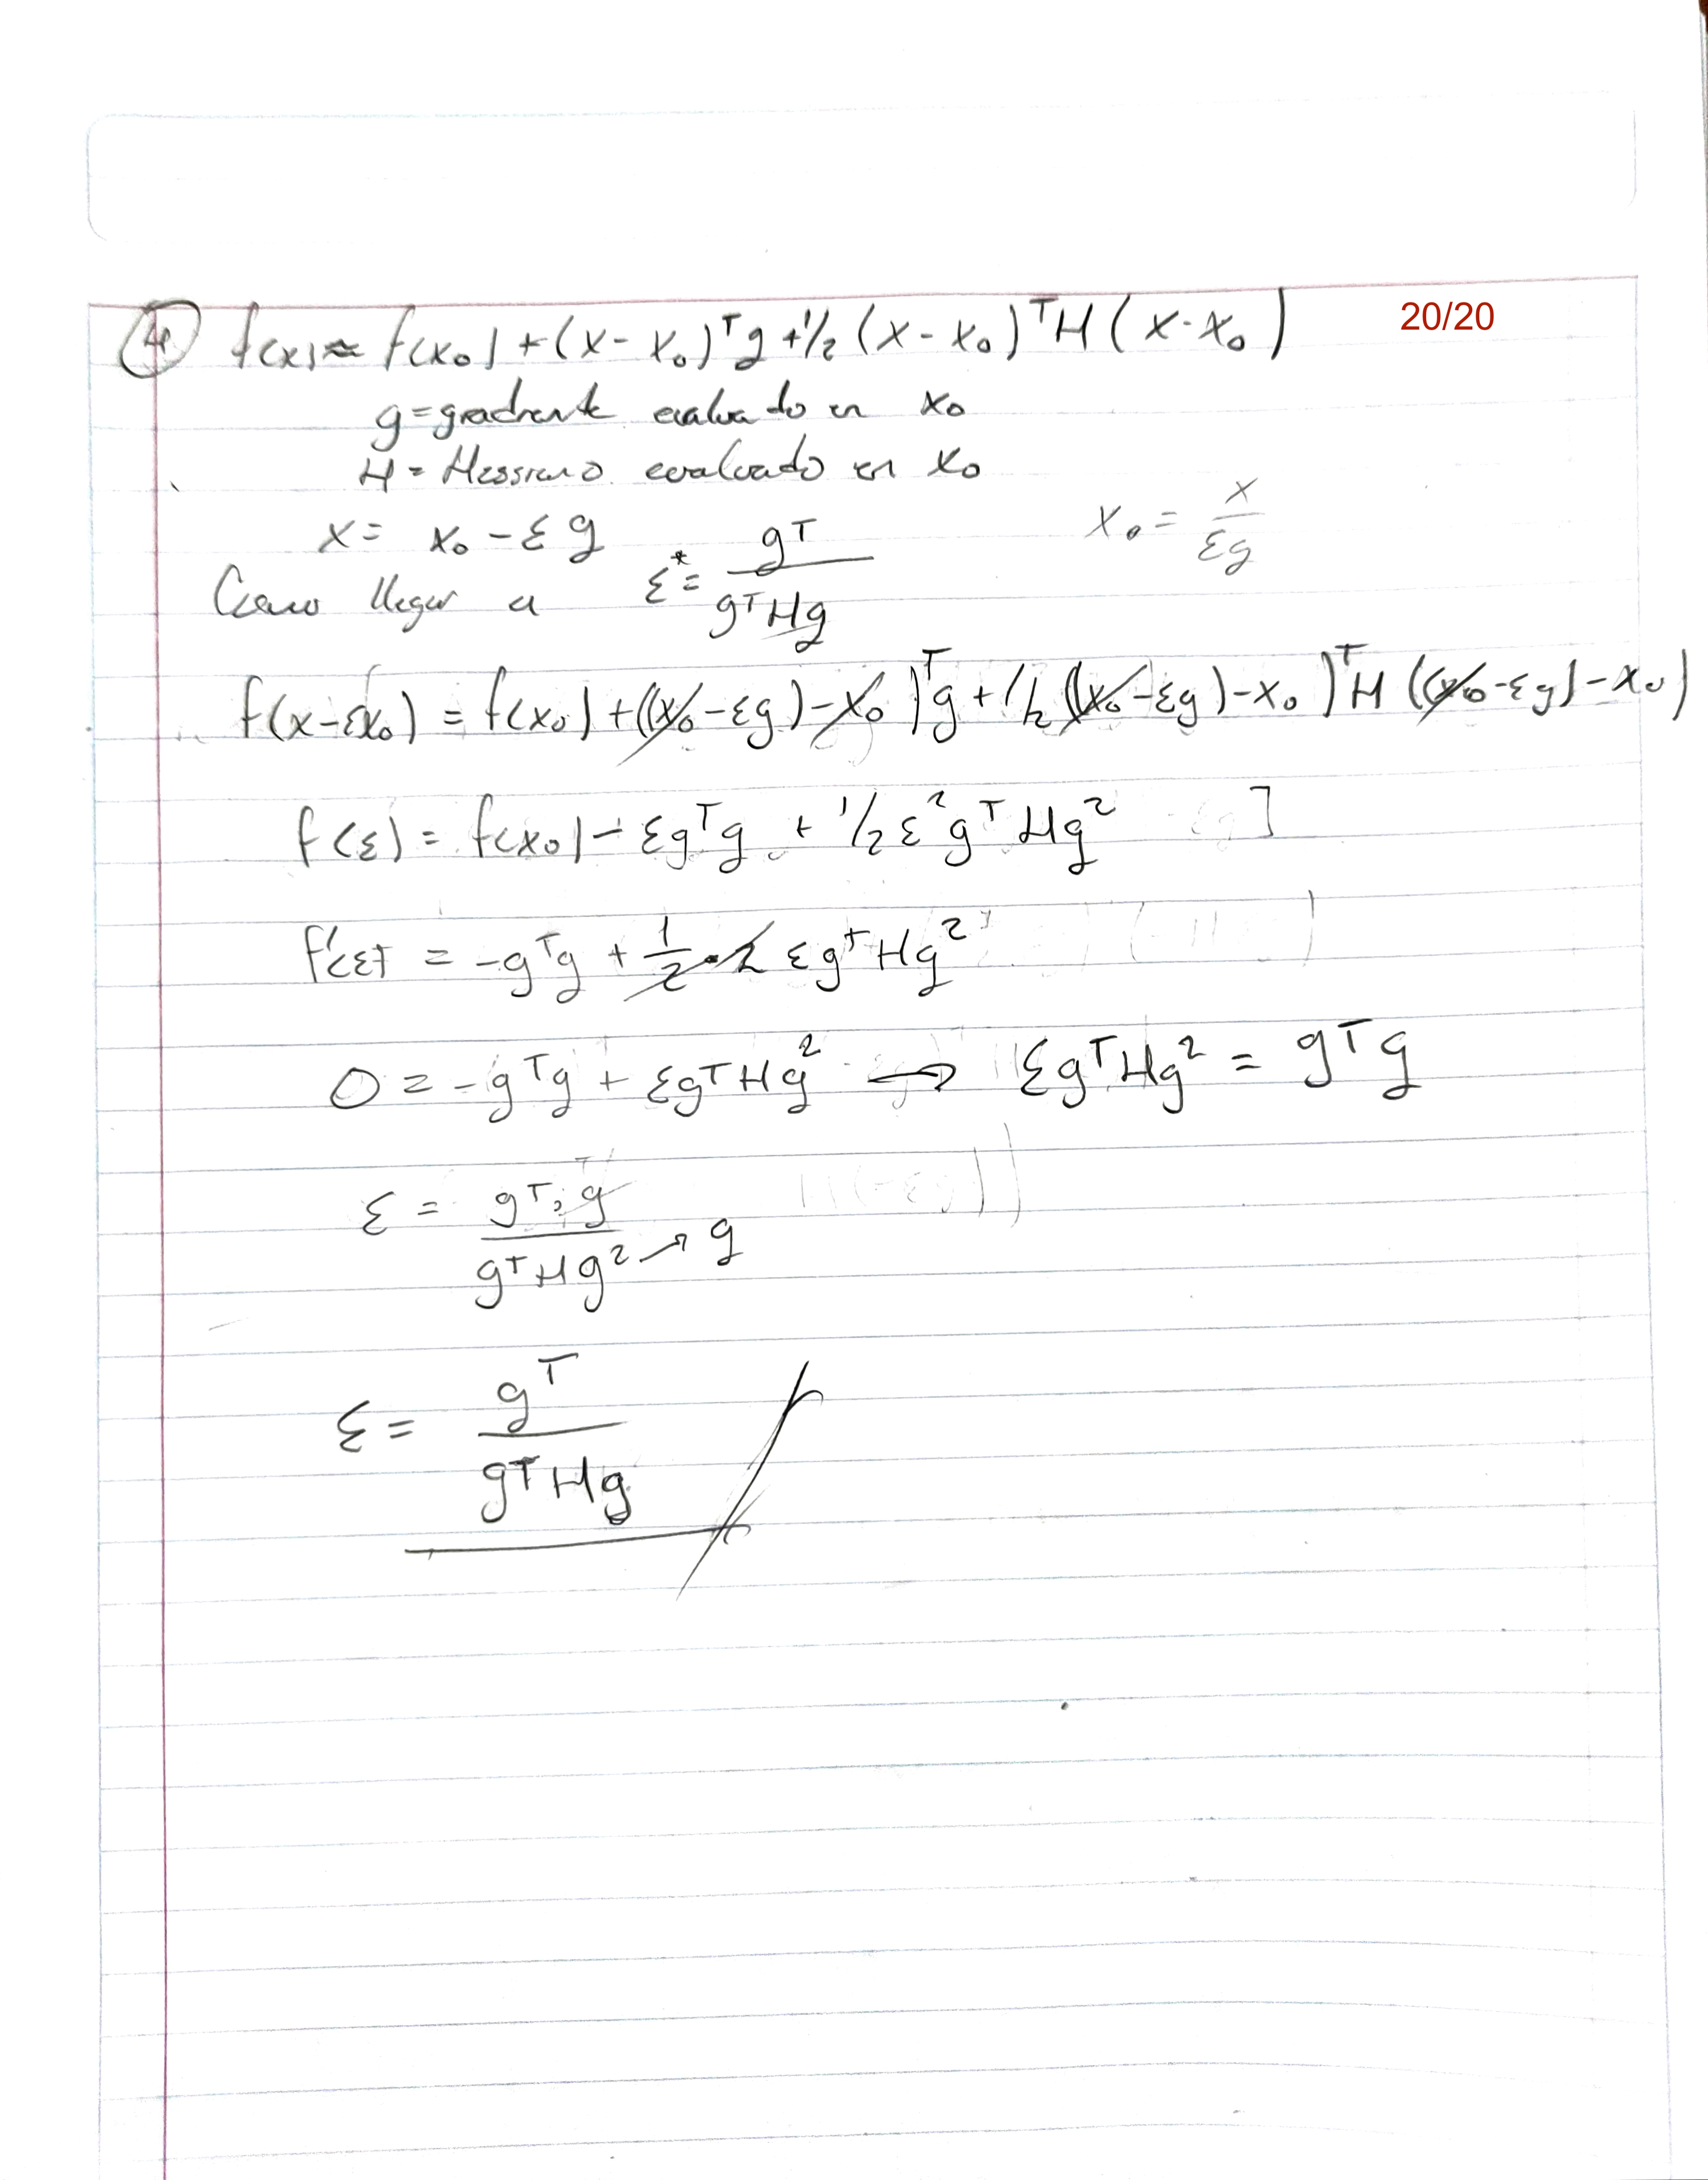 ④ f(x) ≈ f(x₀) + (x - x₀)ᵀg + 1/2 (x - x₀)ᵀH(x - x₀) 20/20
g = gradiente evaluado en x₀
H = Hessiano evaluado en x₀
x = x₀ - εg x₀ = x/εg
Como llegar a ε* = gᵀ/gᵀHg
f(x - εx₀) = f(x₀) + ((x₀ - εg) - x₀)ᵀg + 1/2((x₀ - εg) - x₀)ᵀH((x₀ - εg) - x₀)
f(ε) = f(x₀) - εgᵀg + 1/2 ε²gᵀHg² ]
f'(ε) = -gᵀg + 1/2 · 2 εgᵀHg²
0 = -gᵀg + εgᵀHg² → εgᵀHg² = gᵀg
ε = gᵀg/gᵀHg² → g
ε = gᵀ/gᵀHg